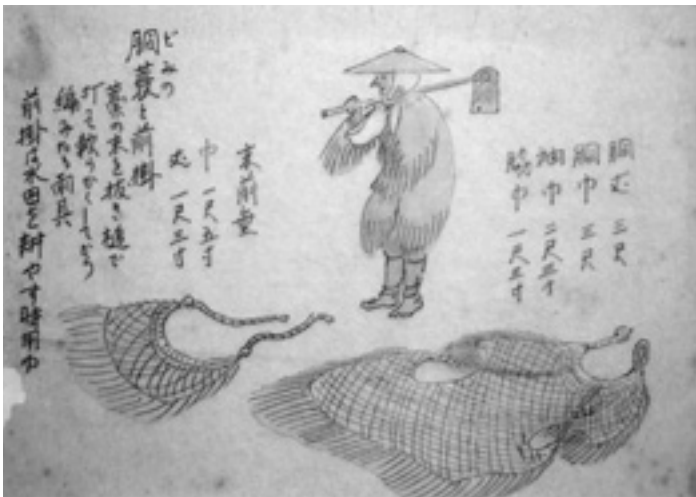 胴丈 三尺
胴巾 三尺
袖巾 二尺五寸
脇巾 一尺五寸
巾 一尺五寸
丈 一尺五寸
どみの
胴蓑と前掛
藁の末を抜き槌で
打って軟らかくしてから
編みたる雨具
前掛は水田を耕やす時用ゆ